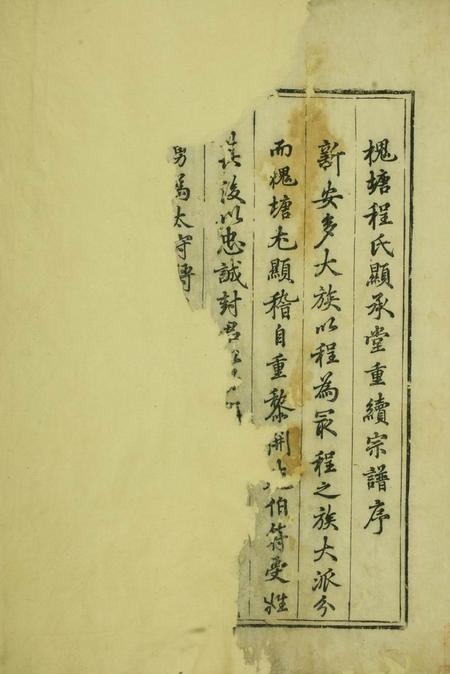 槐塘程氏顯承堂重續宗譜序
新安多大族以程為冣程之族大派分
而槐塘尤顯稽自重黎開伯符受姓
後以忠誠封君
男為太守